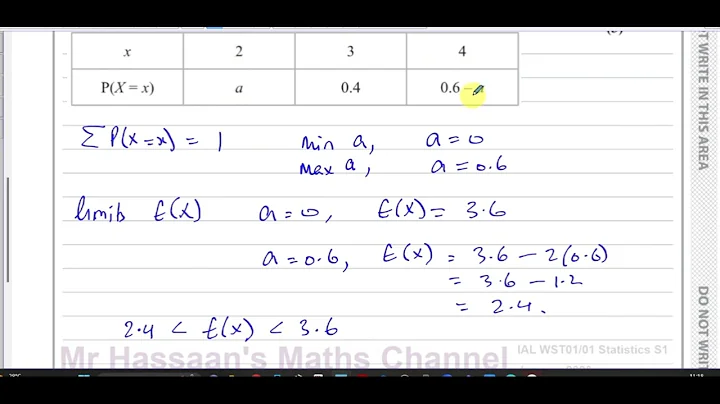 (3)
x 2 3 4
P(X = x) a 0.4 0.6 –
Σ P(X=x) = 1 min a, a = 0
max a, a = 0.6
limits E(X) a = 0, E(X) = 3.6
a = 0.6, E(X) = 3.6 – 2(0.6)
= 3.6 – 1.2
= 2.4.
2.4 < E(X) < 3.6
Mr Hassaan's Maths Channel
IAL WST01/01 Statistics S1
OT WRITE IN THIS AREA
DO NOT WRIT